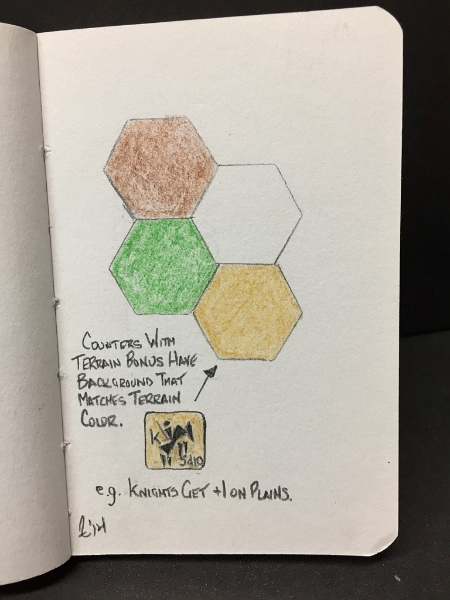 Counters With
Terrain Bonus Have
Background That
Matches Terrain
Color.
5d10
e.g. Knights Get +1 on Plains.